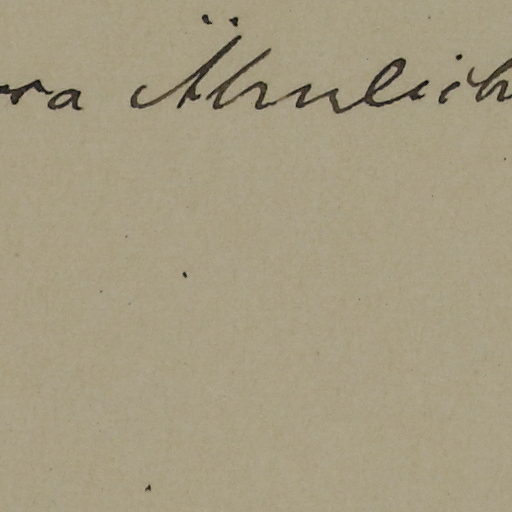 ra Ähnlich